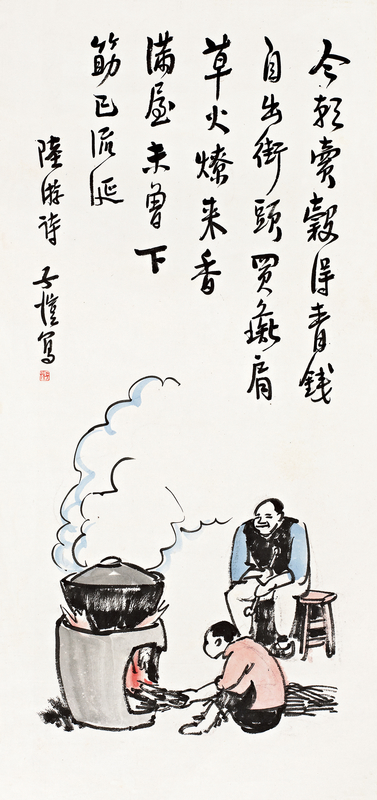 今朝賣穀得青錢
自出街頭買彘肩
草火燎来香
滿屋未曾下
筯已流涎
陸游詩 子愷寫